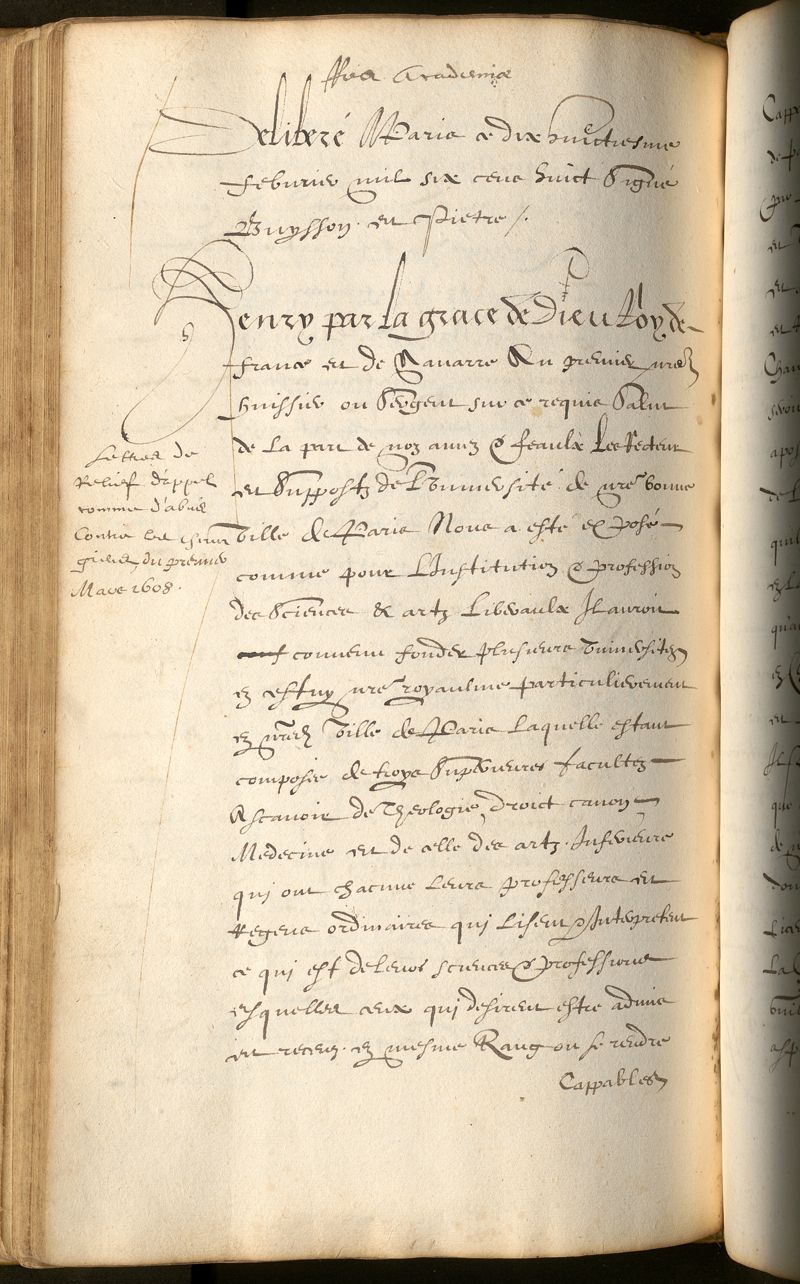 Academiæ
Deliberé A Paris ce dix huictiesme
febvrier mil six cens huict Signé
Buysson. et Pietre /.
Henry par La grace de Dieu Roy de
France et de Navarre Au premier nre
huissier ou Sergent sur ce requis Salut
de La part de noz amez & feaulx Les Recteur
et Suppostz de L'Université de nre bonne
Ville de Paris Nous a esté exposé
comme pour L'Institution & profession
des Sciences & artz Liberaulx Il auroit
convenu fonder plusieurs Universitez
en cestuy nre royaulme particulierement
en Ville de Paris Laquelle estant
composée de troys Superieures facultez
Ascavoir de Theologie, droict canon
Medecine et de celle des artz. Inferieure
qui ont chacune Leurs professeurs et
Regens ordinaires qui Lisent & Interpretent
ce qui est de Leurs sciences & professions
esquelles ceux qui desirent estre admis
et receuz. en mesme Rang ou se rendre
Cappables
Lettres de
Relief d'appel
comme d'abus
Contre les
du premier
Mars 1608.